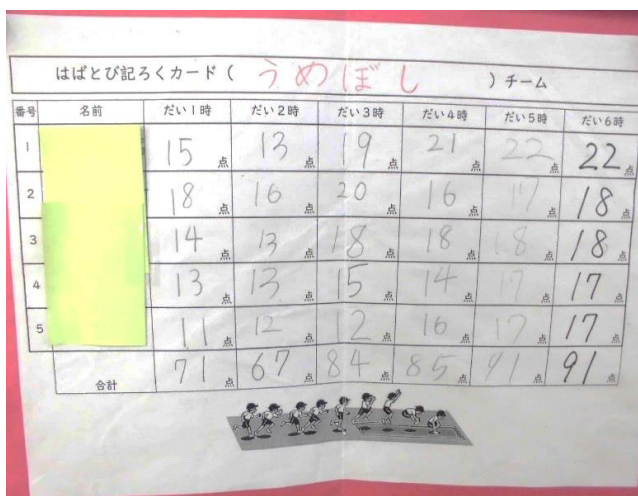 はばとび記ろくカード ( うめぼし ) チーム
番号 名前 だい1時 だい2時 だい3時 だい4時 だい5時 だい6時
1 15点 13点 19点 21点 22点 22点
2 18点 16点 20点 16点 17点 18点
3 14点 13点 18点 18点 18点 18点
4 13点 13点 15点 14点 17点 17点
5 11点 12点 12点 16点 17点 17点
合計 71点 67点 84点 85点 91点 91点